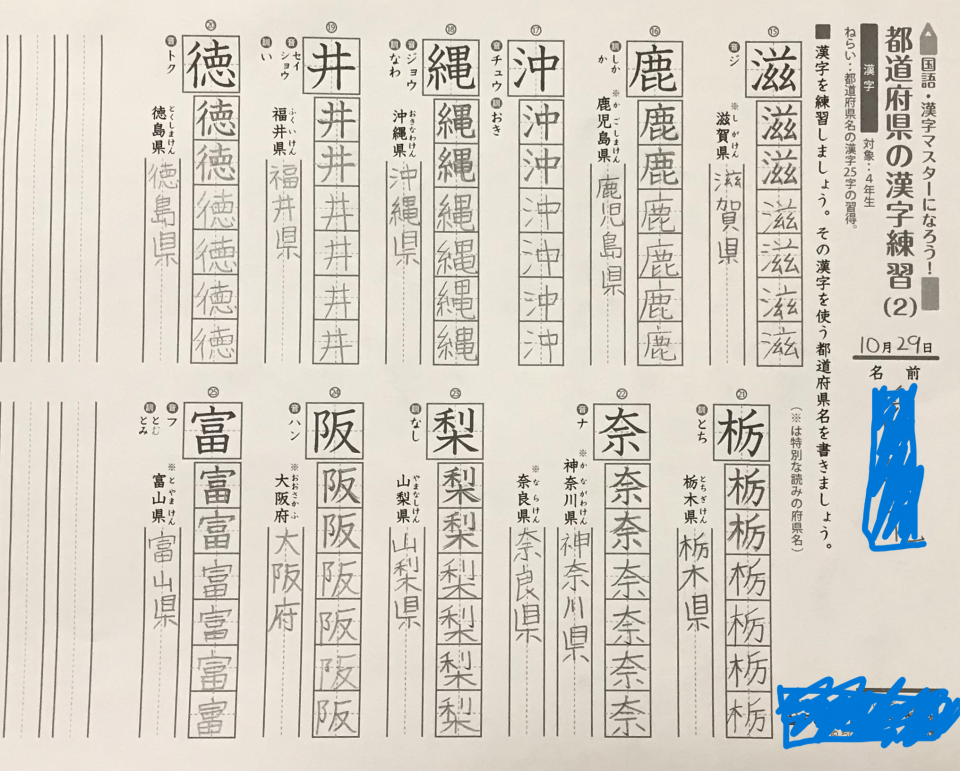 国語・漢字マスターになろう！
都道府県の漢字練習(2)
漢字
対象：４年生
ねらい：都道府県名の漢字25字の習得。
10月29日
名前
■漢字を練習しましょう。その漢字を使う都道府県名を書きましょう。
(※は特別な読みの府県名)
⑮
滋滋滋滋滋滋滋
音ジ
※しがけん
滋賀県 滋賀県
⑯
鹿鹿鹿鹿鹿鹿鹿
訓しか
か
※かごしまけん
鹿児島県 鹿児島県
⑰
沖沖沖沖沖沖沖
音チュウ 訓おき
⑱
縄縄縄縄縄縄縄
音ジョウ
訓なわ
おきなわけん
沖縄県 沖縄県
⑲
井井井井井井井
音セイ
ショウ
訓い
ふくいけん
福井県 福井県
⑳
徳徳徳徳徳徳徳
音トク
とくしまけん
徳島県 徳島県
㉑
栃栃栃栃栃栃栃
訓とち
とちぎけん
栃木県 栃木県
㉒
奈奈奈奈奈奈奈
音ナ
※かながわけん
神奈川県 神奈川県
※ならけん
奈良県 奈良県
㉓
梨梨梨梨梨梨梨
訓なし
やまなしけん
山梨県 山梨県
㉔
阪阪阪阪阪阪阪
音ハン
※おおさかふ
大阪府 大阪府
㉕
富富富富富富富
音フ
訓とむ
とみ
※とやまけん
富山県 富山県